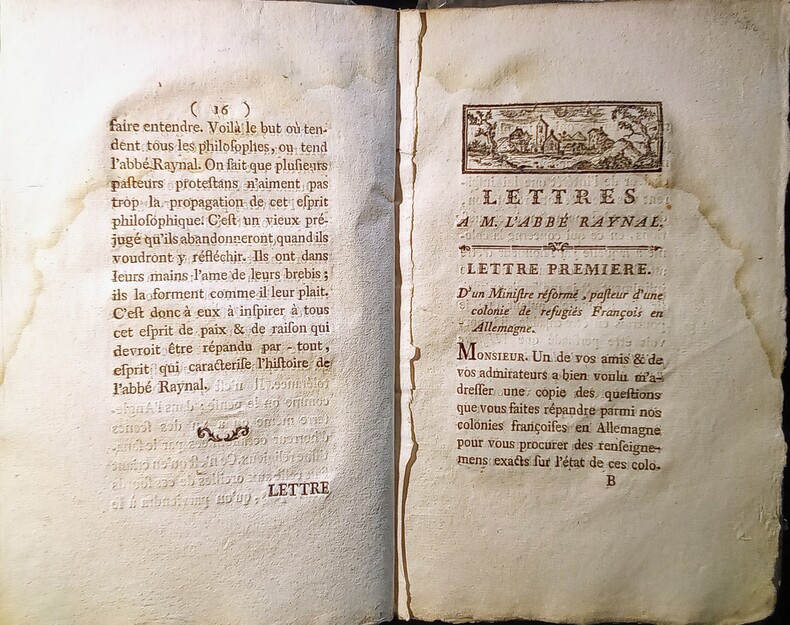 ( 16 )
faire entendre. Voilà le but où ten-
dent tous les philoſophes, ou tend
l'abbé Raynal. On ſait que pluſieurs
paſteurs proteſtans n'aiment pas
trop la propagation de cet eſprit
philoſophique. C'eſt un vieux pré-
jugé qu'ils abandonneront quand ils
voudront y réfléchir. Ils ont dans
leurs mains l'ame de leurs brebis ;
ils la forment comme il leur plait.
C'eſt donc à eux à inſpirer à tous
cet eſprit de paix & de raiſon qui
devroit être répandu par - tout,
eſprit qui caracteriſe l'hiſtoire de
l'abbé Raynal.
LETTRE
LETTRES
A M. L'ABBÉ RAYNAL.
LETTRE PREMIERE.
D'un Miniſtre réformé, paſteur d'une
colonie de refugiés François en
Allemagne.
MONSIEUR. Un de vos amis & de
vos admirateurs a bien voulu m'a-
dreſſer une copie des queſtions
que vous faites répandre parmi nos
colonies françoiſes en Allemagne
pour vous procurer des renſeigne-
mens exacts ſur l'état de ces colo-
B